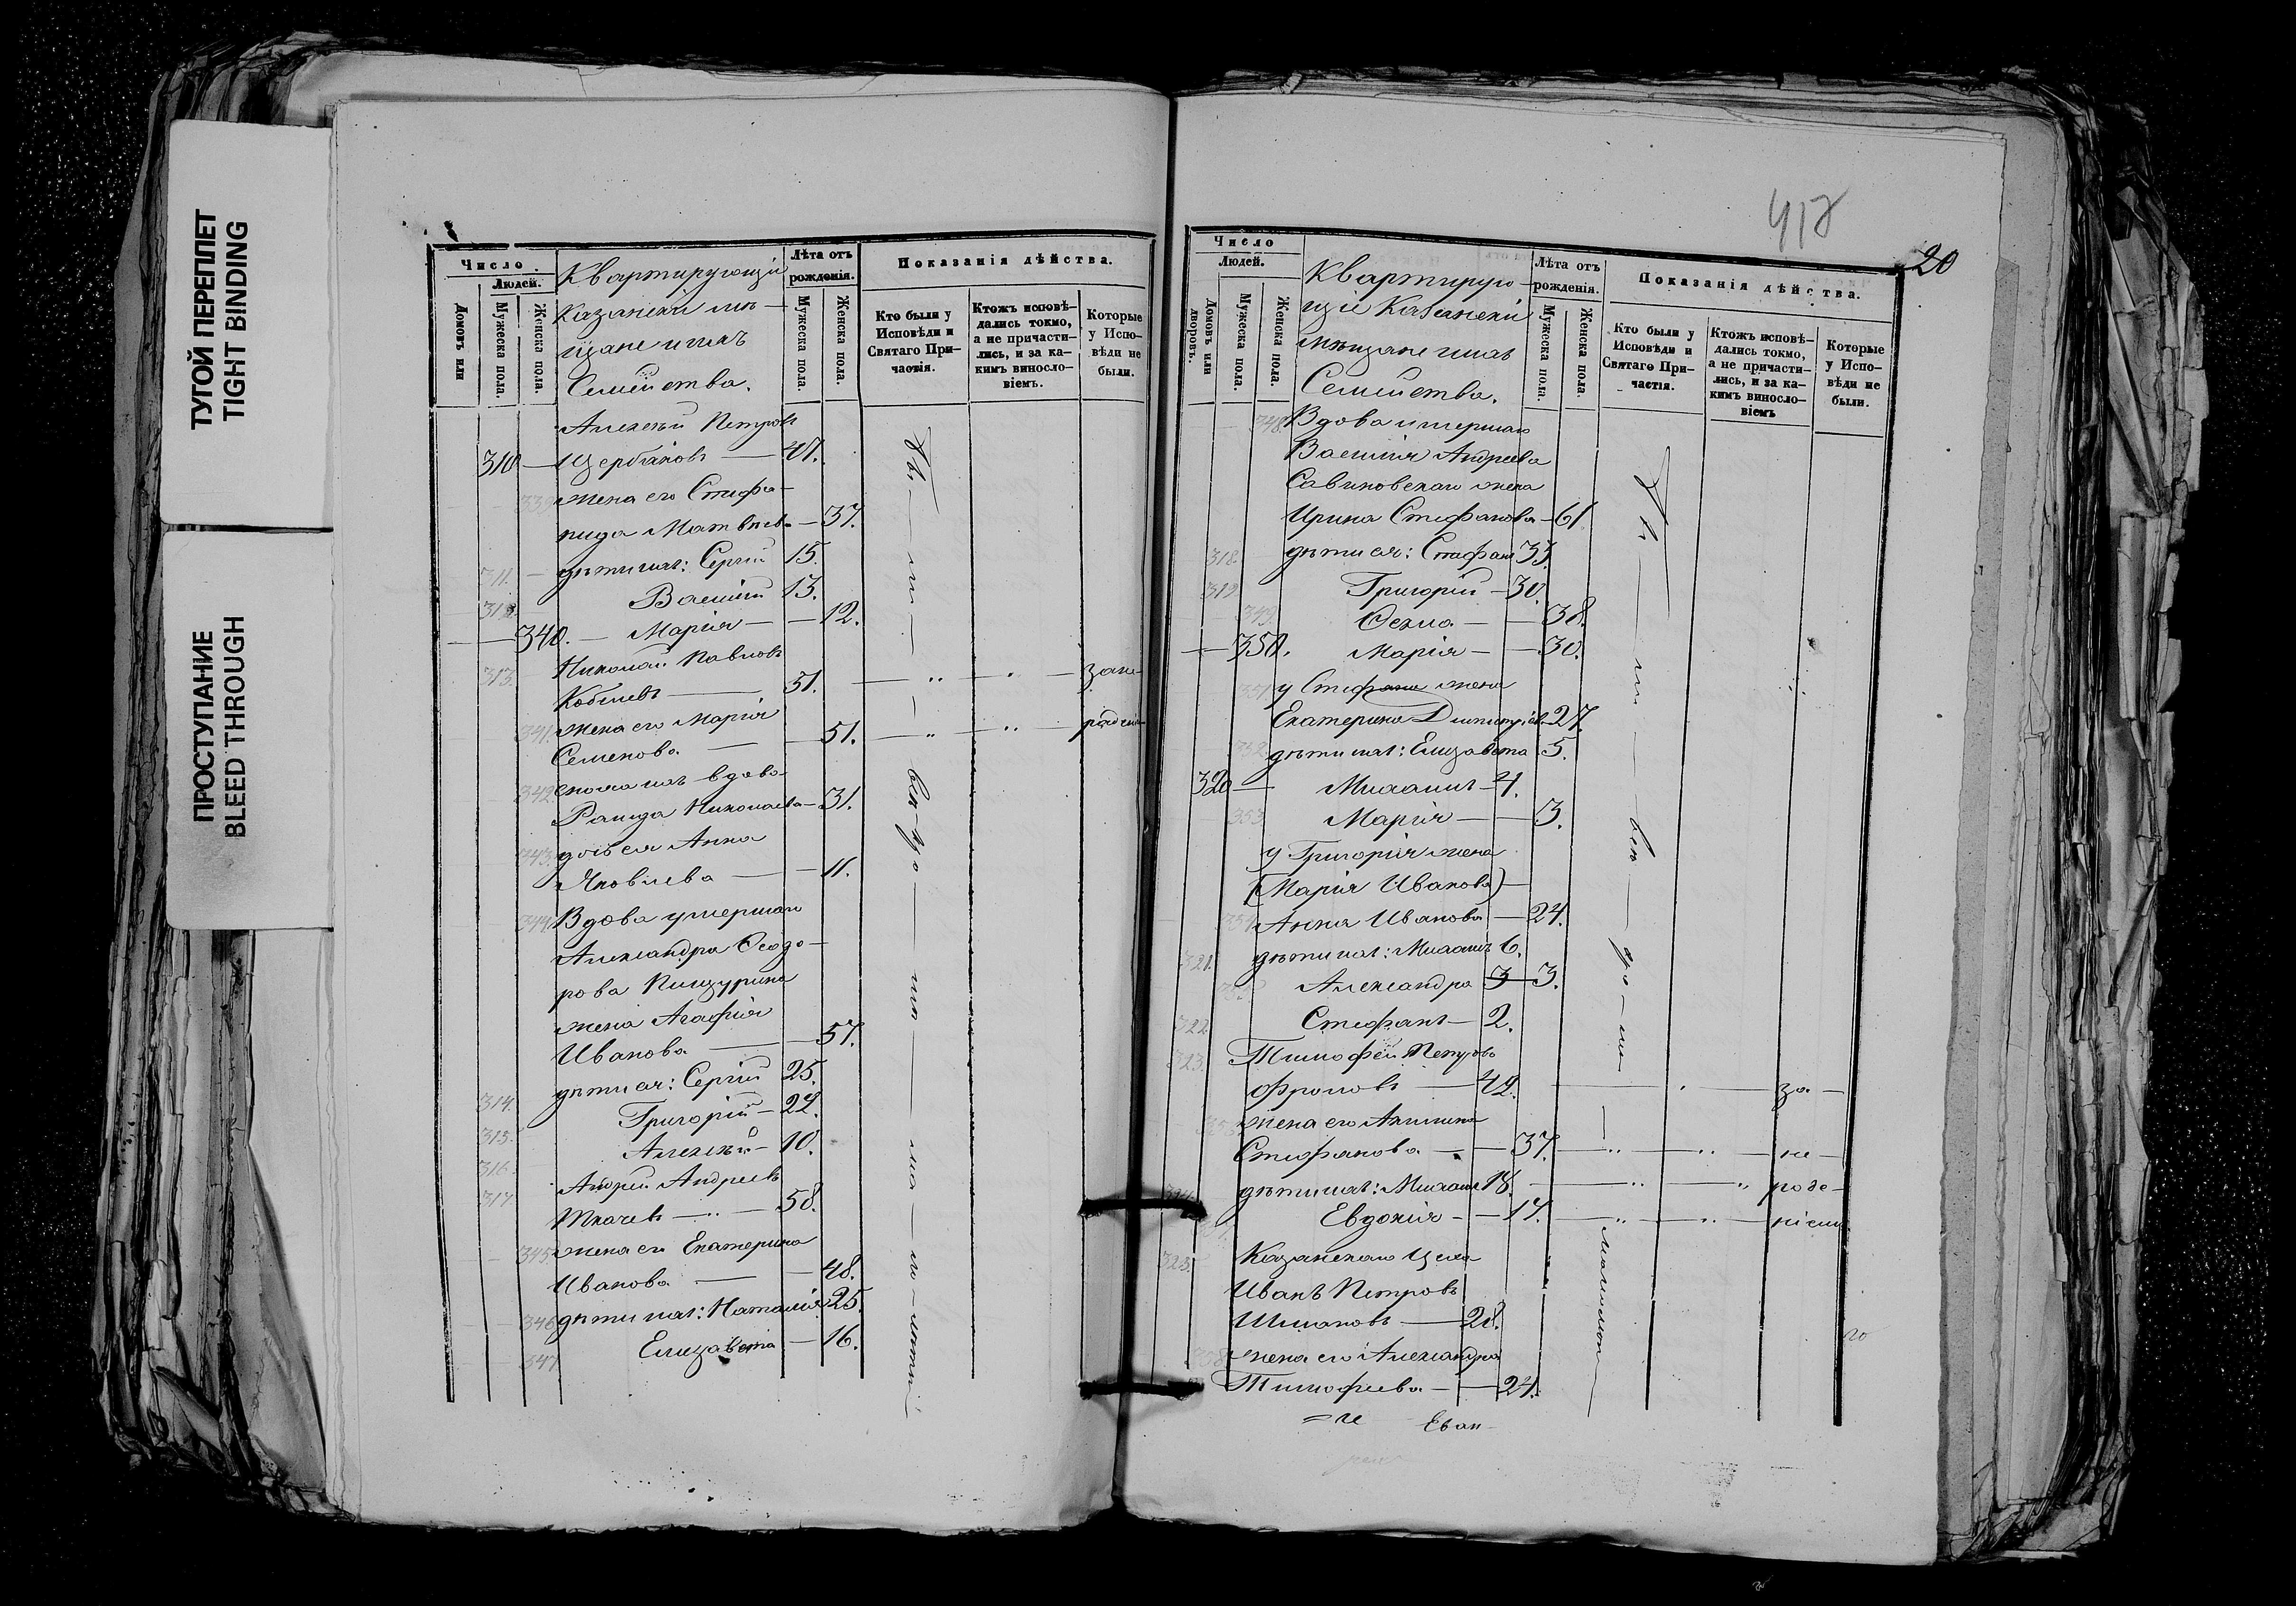 ТУГОЙ ПЕРЕПЛЕТ
TIGHT BINDING
ПРОСТУПАНИЕ
BLEED THROUGH
Число
Людей.
Домовъ или
Мужеска пола.
Женска пола.
Квартирующіи
Казанскіи мѣ-
щане и ихъ
Семейства.
Лѣта отъ рожденія.
Мужеска пола.
Женска пола.
Показанія дѣйства.
Кто были у Исповѣди и Святаго Причастія.
Ктожъ исповѣдались токмо, а не причастились, и за какимъ винословіемъ.
Которые у Исповѣди не были.
Алексѣй Петровъ
310 — Щербаковъ — 41.
339 жена его Глафи-
рида Матвѣева — 37.
311. — дѣти ихъ: Сергій 15.
312. Василій 13.
340. — Марія — 12.
313. Николай Павловъ
Кобелевъ — 51. — " — " — зане-
341. жена его Марія
Семенова — 51. — " — " — радѣніе
342. сноха ихъ вдова
Раида Николаева — 31.
343. дочь ея Анна
Яковлева — 11.
344. Вдова умершаго
Александра Ѳеодо-
рова Пищурина
жена Агафія
Иванова — 57.
314. дѣти ея: Сергій 25.
315. Григорій — 22.
316. Алексѣй — 10.
317. Андрей Андреевъ
Ткачевъ — " — 58.
345. жена его Екатерина
Иванова — 48.
346. дѣти ихъ: Наталія 25.
347. Елизавета — 16.
418
20
Число
Людей.
Домовъ или дворовъ.
Мужеска пола.
Женска пола.
Квартирую-
щіе Казанскіи
мѣщане и ихъ
Семейства.
Лѣта отъ рожденія.
Мужеска пола.
Женска пола.
Показанія дѣйства.
Кто были у Исповѣди и Святаго Причастія.
Ктожъ исповѣдались токмо, а не причастились, и за какимъ винословіемъ
Которые у Исповѣди не были.
348. Вдова умершаго
Василія Андреева
Савиновскаго жена
Ирина Стефанова — 61.
318. дѣти ея: Стефанъ 33.
319. Григорій — 30.
349. Ѳекла — 38.
350. Марія — 30.
351. у Стефана жена
Екатерина Димитріева 27.
352. дѣти ихъ: Елизавета 5.
320 — Михаилъ — 4.
353. Марія — 3.
у Григорія жена
(Марія Иванова) —
354. Анна Иванова — 24.
321. дѣти ихъ: Михаилъ 6.
355. Александра 3 — 3.
322. Стефанъ — 2.
323. Тимофей Петровъ
Фроловъ — 42. — за —
356. жена его Акилина
Стефанова — 37. — " — " — не —
324. дѣти ихъ: Михаилъ 18. — " — " раде-
Евдокія — 17. — " — " — ніемъ
325. Казанскаго Цеха
Иванъ Петровъ
Шмаковъ — 28.
358. жена его Александра
Тимофеева — 24.
= и Еван-